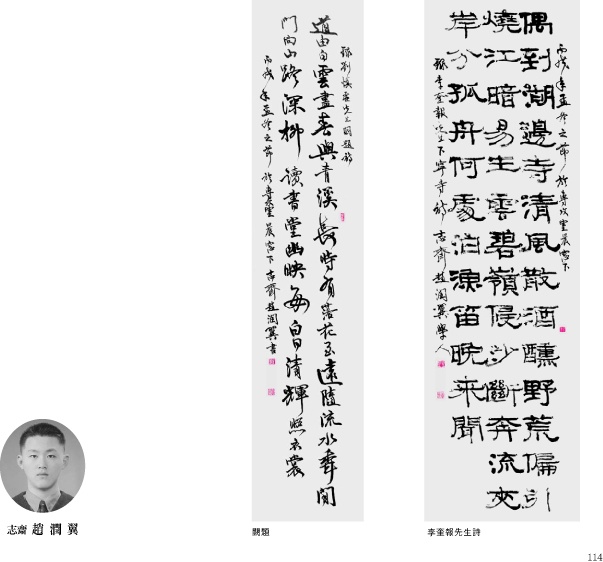 偶到湖邊寺清風散酒醺野荒偏引
燒江暗易生雲碧嶺侵沙斷奔流夾
岸分孤舟何處泊漁笛晚來聞
丙戌年孟冬之節於
堂晨窓下
錄李奎報先生下寧寺詩 志齋趙潤翼學人
錄劉愼虛先生闕題節
道由白雲盡春與青溪長時有落花至遠隨流水香閒
門向山路深柳讀書堂幽映每白日清輝照衣裳
丙戌年孟冬之節於
堂晨窓下志齋趙潤翼書
志齋 趙潤翼
闕題
李奎報先生詩
114